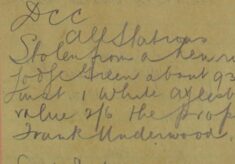 DCC
All Stations
Stolen from a hen
Green about
inst 1 White Aylesb
value 2/6 the prop
Frank Underwood.